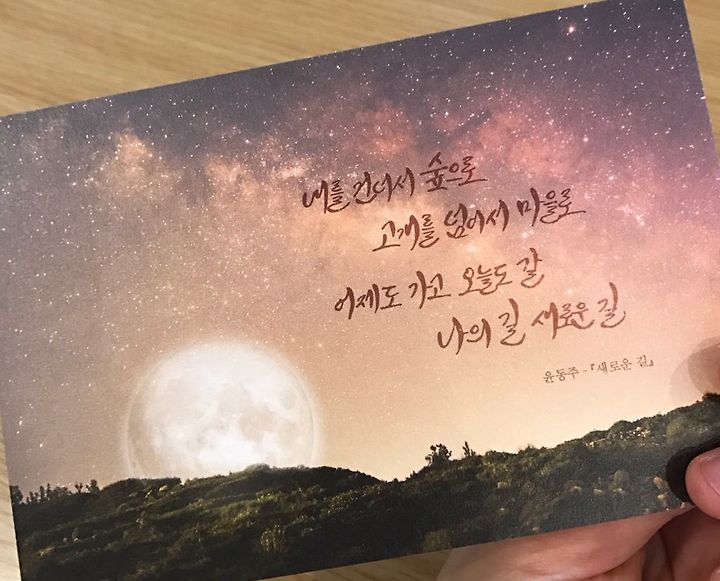 내를 건너서 숲으로
고개를 넘어서 마을로
어제도 가고 오늘도 갈
나의 길 새로운 길
윤동주 - 『새로운 길』